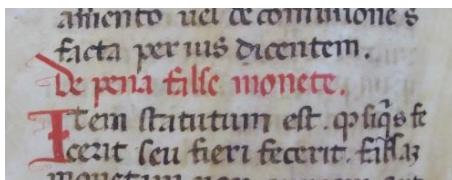 amento uel de comunione s
facta per ius dicentem.
De pena false monete.
Item statutum est. qp siqs fe
cerit seu fieri fecerit. falsaz
monetam non